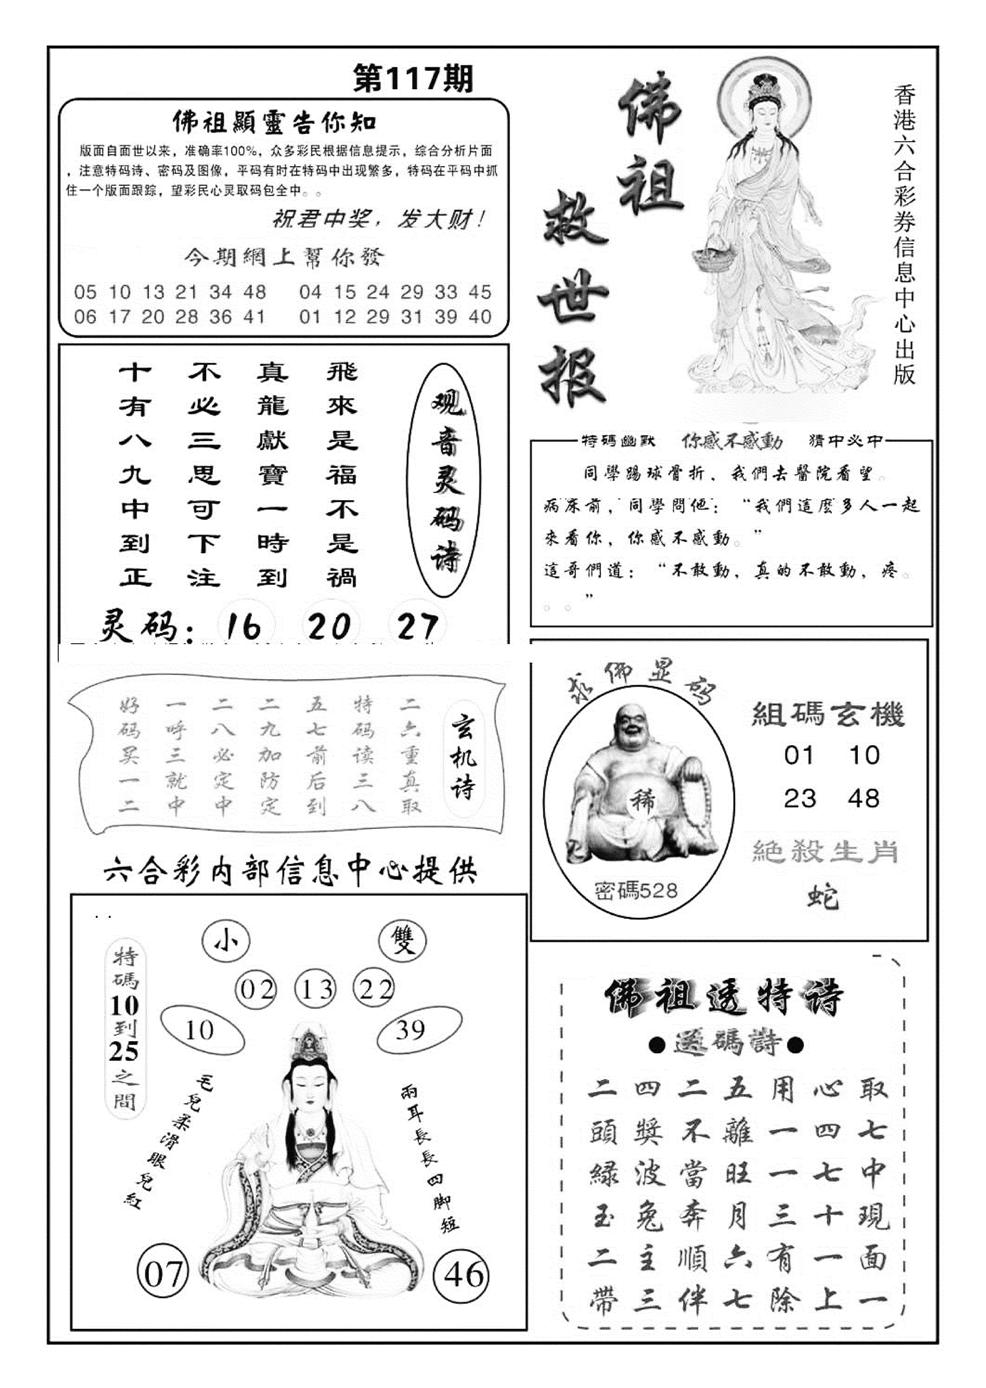 第117期
佛祖顯靈告你知
版面自面世以来，准确率100%，众多彩民根据信息提示，综合分析片面
，注意特码诗、密码及图像，平码有时在特码中出现繁多，特码在平码中抓
住一个版面跟踪，望彩民心灵取码包全中。。
祝君中奖，发大财！
今期網上幫你發
05 10 13 21 34 48 04 15 24 29 33 45
06 17 20 28 36 41 01 12 29 31 39 40
佛祖
救世报
香港六合彩券信息中心出版
观音灵码诗
飛來是福不是禍
真龍獻寶一時到
不必三思可下注
十有八九中到正
灵码：16 20 27
特碼幽默 你感不感動 猜中必中
同學踢球骨折，我們去醫院看望。
病床前，同學問他：“我們這麼多人一起
來看你，你感不感動。”
這哥們道：“不敢動，真的不敢動，疼。
。。”
玄机诗
二六重真取
特码读三八
五七前后到
二九加防定
二八必定中
一呼三就中
好码买一二
六合彩内部信息中心提供
求佛显码
稀
密碼528
組碼玄機
01 10
23 48
絕殺生肖
蛇
特碼10到25之間
小
雙
02 13 22
10
39
毛兒柔滑眼兒紅
兩耳長長四脚短
07
46
佛祖透特诗
●送碼詩●
二四二五用心取
頭獎不離一四七
綠波當旺一七中
玉兔奔月三十現
二主順六有一面
帶三伴七除上一